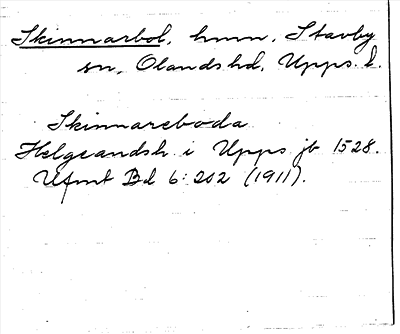 Skinnarbol, hmn, Stavby
sn, Olands hd, Upps. l.
Skinnareboda
Helgeandsh. i Upps. jb 1528.
UFmT Bd 6: 202 (1911).